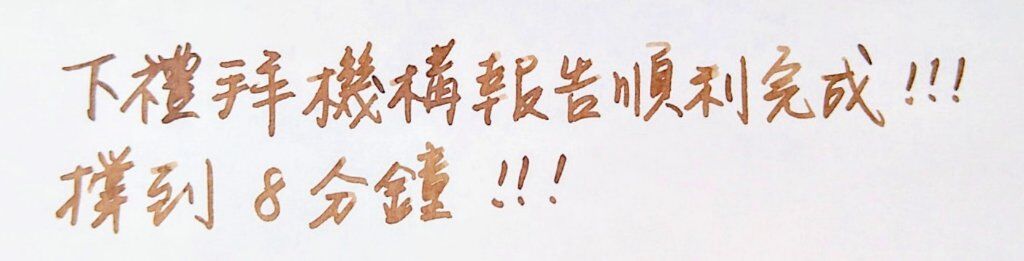 下禮拜機構報告順利完成!!!
撐到8分鐘!!!